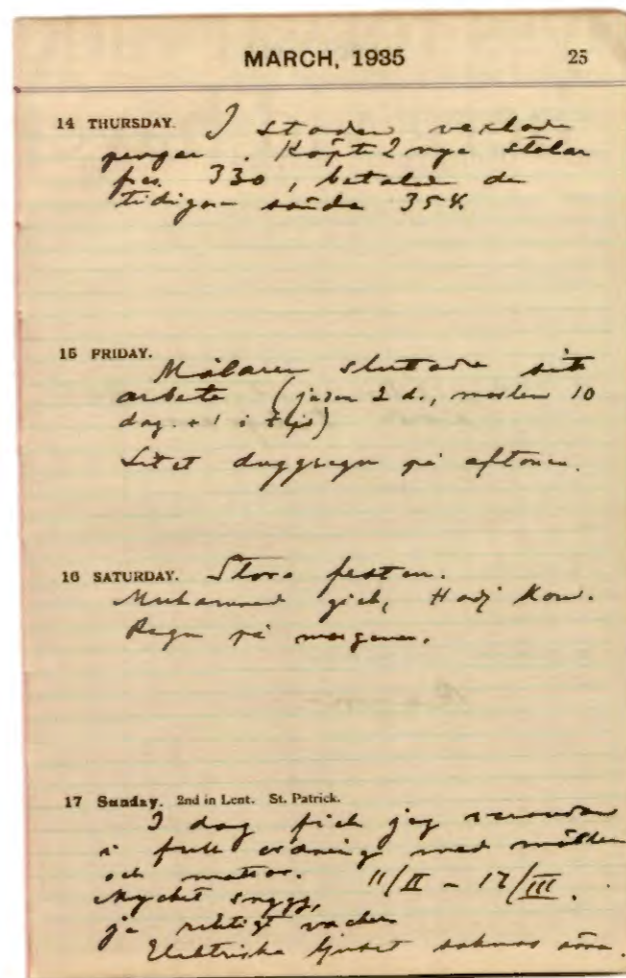 MARCH, 1935 25
14 THURSDAY. I staden vexlade
pengar. Köpte 2 nya stolar
frcs. 330, betalade de
tidigare sända 354.
15 FRIDAY.
Målaren slutade sitt
arbete (jasen 2 d., moslem 10
dag. + 1 i
Litet duggregn på aftonen.
16 SATURDAY. Stora festen.
Muhammed gick, Hadj kom.
Regn på morgonen.
17 Sunday. 2nd in Lent. St. Patrick.
I dag fick jag verandan
i full ordning med möbler
och mattor. 11/II – 17/III.
Mycket snygg,
ja riktigt vacker
Elektriska ljuset saknas ännu.